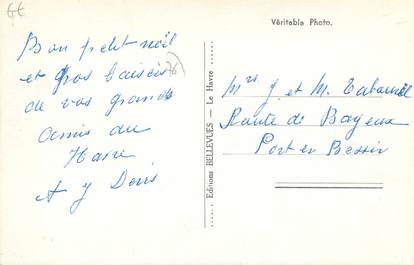 Véritable Photo.
Bon petit noël
et gros baisers
de vos grands
amis du
Havre
Editions BELLEVUES — Le Havre
Mrs J. et M.
Route de Bayeux
Port en Bessin